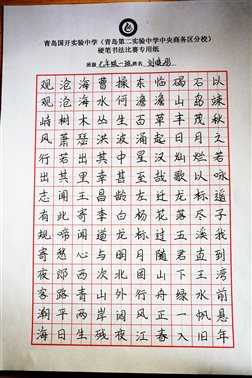 青岛国开实验中学（青岛第二实验中学中央商务区分校）
硬笔书法比赛专用纸
班级 七年级一班 姓名 刘
观沧海曹操东临碣石以
观沧海水何澹澹山岛竦
峙树木丛生百草丰茂秋
风萧瑟洪波涌起日月之
行若出其中星汉灿烂若
出其里幸甚至哉歌以咏
志闻王昌龄左迁龙标遥
有此寄李白杨花落尽子
规啼闻道龙标过五溪我
寄愁心与明月随君直到
夜郎西次北固山下王湾
客路青山外行舟绿水前
潮平两岸阔风正一帆悬
海日生残夜江春入旧年